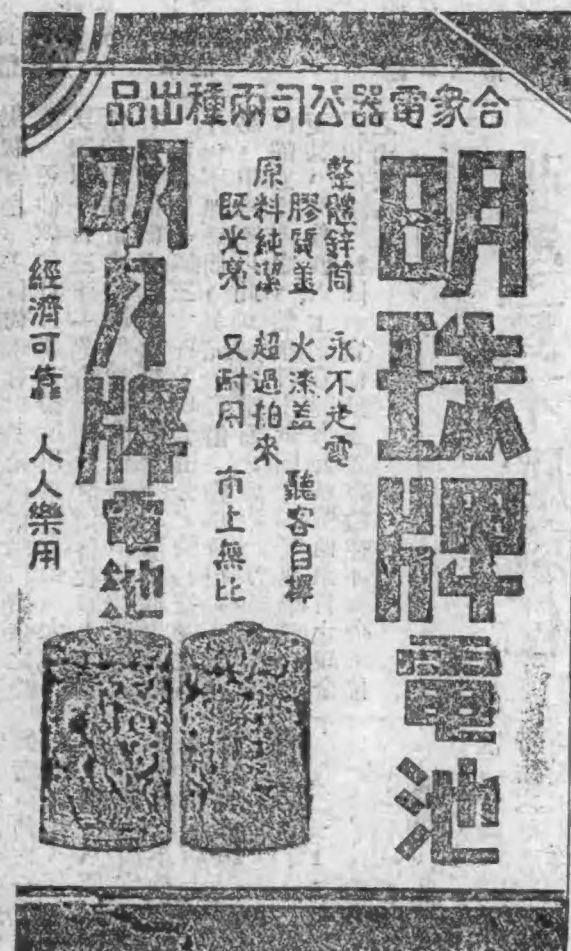 合衆電器公司兩種出品
明珠牌電池
整體鋅筒　永不走電
膠質盖　火漆盖　聽客自擇
原料純潔　超過拍來
既光亮　又耐用　市上無比
明月牌電池
經濟可靠　人人樂用